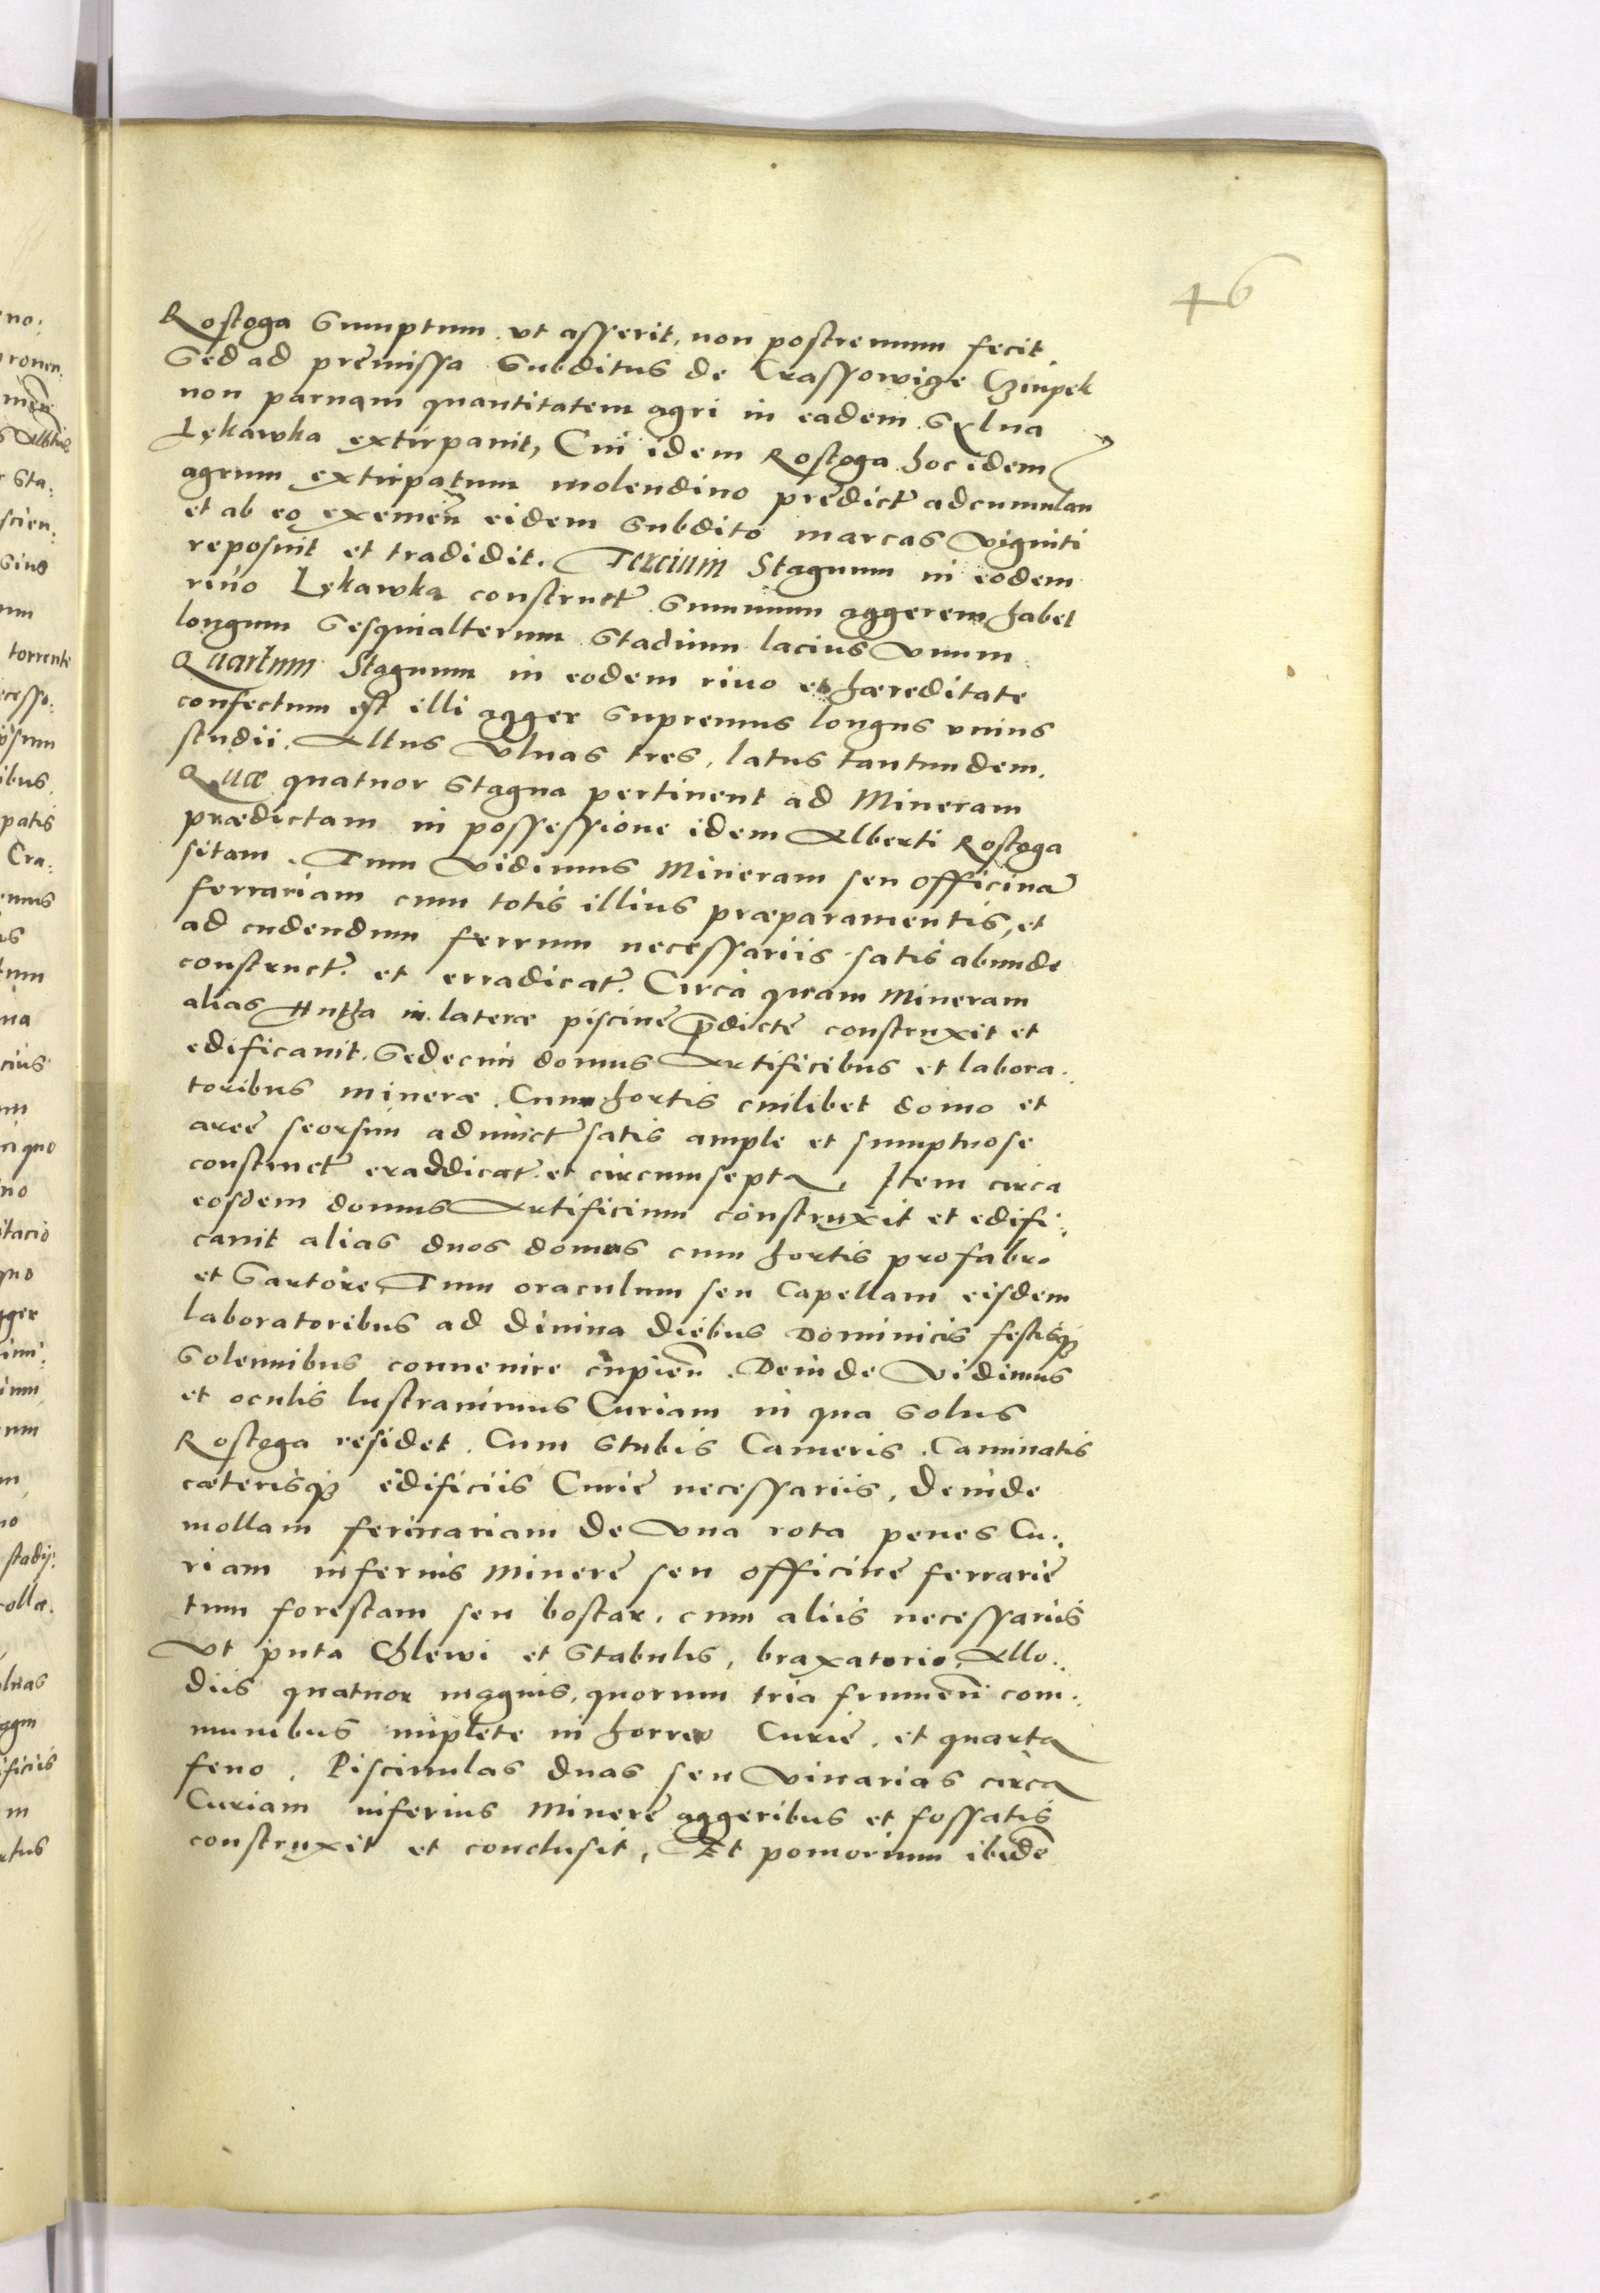 46
Rostoga Sumptum vt asserit, non postremum fecit.
Sed ad premissa Subditus de Crassowize Czupek
non paruam quantitatem agri in eadem Sylua
Lękawka extirpauit, Cui idem Rostoga hoc idem
agrum extirpatum molendino predict adcumulan
et ab eo exemen eidem Subdito marcas viginti
reposuit et tradidit. Tercium Stagnum in eodem
riuo Lękawka construct Summum aggerem habet
longum Sesquialterum Stadium lacius vnum
Quartum Stagnum in eodem riuo et hæreditate
confectum est illi agger Supremus longus vnius
studii. Altus vlnas tres, latus tantundem.
Quæ quatuor Stagna pertinent ad Mineram
prædictam in possessione idem Alberti Rostoga
sitam. Tum vidimus Mineram seu officinā
ferrariam cum totis illius præparamentis, et
ad cudendum ferrum necessariis satis abunde
construct. et erradicat. Circa quam Mineram
alias Hutha in lateræ piscine p̄dicte construxit et
edificauit. Sedecim domus Artificibus et labora.
toribus mineræ. Cum hortis cuilibet domo et
aree seorsim adiunct satis ample et sumptuose
construct eraddicat et circumsepta, Item circa
eosdem domus Artificium construxit et edifi:
cauit alias duos domus cum hortis pro fabro
et Sartore, Tum oraculum seu Capellam eisdem
laboratoribus ad diuina diebus Dominicis festisq3
Solennibus conuenire cupien. Deinde vidimus
et oculis lustrauimus Curiam in qua Solus
Rostoga residet. Cum Stubis Cameris. Caminatis
cæterisq3 edificiis Curie necessariis, deinde
mollam ferinariam de vna rota penes Cu:
riam inferius Minere seu officine ferrarie
tum forestam seu bostar, cum aliis necessariis
vt puta Chlewi et Stabulis, braxatorio, Allo:
diis quatuor magnis, quorum tria frumen com:
munibus implete in horreo Curie, et quarta
feno. Piscinulas duas seu viuarias circa
Curiam inferius Minere aggeribus et fossatis
construxit et conclusit, Et pomorium ibidē